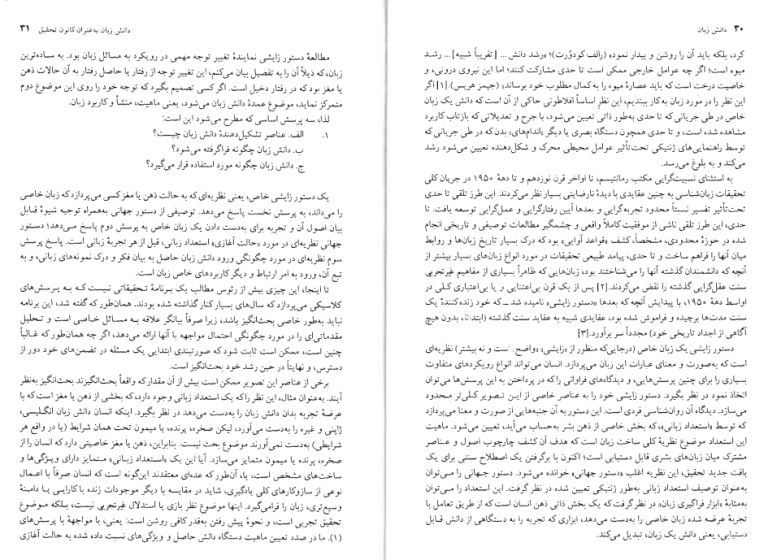 ۳۰ دانش زبان
کرد، بلکه باید آن را روشن و بیدار نمود» (رالف کودوُرث)؛ «رشد دانش ... [تقریباً شبیه]... رشد
میوه است؛ اگر چه عوامل خارجی ممکن است تا حدی مشارکت کنند؛ اما این نیروی درونی، و
خاصیت درخت است که باید عصارهٔ میوه را به کمال مطلوب خود برساند» (جیمز هریس).[۱] اگر
این نظر را در مورد زبان به‌کار ببندیم، این نظرِ اساساً افلاطونی حاکی از آن است که دانش یک زبان
خاص در طی جریانی که تا حدی به‌طور ذاتی تعیین می‌شود، با جرح و تعدیلاتی که بازتاب کاربرد
مشاهده شده است، و تا حدی همچون دستگاه بصری یا دیگر «اندام‌های» بدن که در طی جریانی که
توسط راهنمایی‌های ژنتیکی تحت‌تأثیر عوامل محیطی محرک و شکل‌دهنده تعیین می‌شود رشد
می‌کند و به بلوغ می‌رسد.
به استثنای نسبیت‌گرایی مکتب رمانتیسم، تا اواخر قرن نوزدهم و تا دههٔ ۱۹۵۰ در جریان کلی
تحقیقات زبان‌شناسی به چنین عقایدی با دیدهٔ نارضایتی بسیار نظر می‌کردند. این طرز تلقی تا حدی
تحت‌تأثیر تفسیر نسبتاً محدود تجربه‌گرایی و بعدها آیین رفتارگرایی و عمل‌گرایی توسعه یافت. تا
حدی، این طرز تلقی ناشی از موفقیت کاملاً واقعی و چشمگیر مطالعات توصیفی و تاریخی انجام
شده در حوزهٔ محدودی، مشخصاً، کشف «قواعد آوایی» بود که درک بسیار تاریخ زبان‌ها و روابط
میان آنها را فراهم ساخت و تا حدی، پیامد طبیعی تحقیقات در مورد انواع زبان‌های بسیار بیشتر از
آنچه که دانشمندان گذشته آنها را می‌شناختند بود، زبان‌هایی که ظاهراً بسیاری از مفاهیم غیرتجربی
سنت عقل‌گرایی گذشته را نقض می‌کردند.[۲] پس از یک قرن بی‌اعتنایی و یا بی‌اعتباری کلی در
اواسط دههٔ ۱۹۵۰، با پیدایش آنچه که بعدها «دستور زایشی» نامیده شد ـ که خود زنده‌کنندهٔ یک
سنت مدت‌ها برچیده و فراموش شده بود، عقایدی شبیه به عقاید سنت گذشته (ابتدائاً، بدون هیچ
آگاهی از اجداد تاریخی خود) مجدداً سر برآورد.[۳]
دستور زایشی یک زبان خاص (درجایی‌که منظور از «زایشی» «واضح» است و نه بیشتر) نظریه‌ای
است که به‌صورت و معنای عبارات این زبان می‌پردازد. انسان می‌تواند انواع رویکردهای متفاوت
بسیاری را برای چنین پرسش‌هایی، و دیدگاه‌های فراوانی را که در پرداختن به این پرسش‌ها می‌توان
اتخاذ نمود در نظر بگیرد. دستور زایشی خود را به عناصر خاصی از این تصویر کلی‌تر محدود
می‌سازد. دیدگاه آن روان‌شناسی فردی است. این دستور به آن جنبه‌هایی از صورت و معنا می‌پردازد
که توسط «استعداد زبانی»، که بخش خاصی از ذهن بشر به‌حساب می‌آید، تعیین می‌شود. ماهیت
این استعداد موضوع نظریهٔ کلی ساخت زبان است که هدف آن کشف چارچوب اصول و عناصر
مشترک میان زبان‌های بشری قابل دستیابی است؛ اکنون با برگرفتن یک اصطلاح سنتی برای یک
بافت جدید تحقیق، این نظریه اغلب «دستور جهانی» خوانده می‌شود. دستور جهانی را می‌توان
به‌عنوان توصیف استعداد زبانی به‌طور ژنتیکی تعیین شده در نظر گرفت. این استعداد را می‌توان
به‌مثابهٔ «ابزار فراگیری زبان» در نظر گرفت که یک بخش ذاتی ذهن انسان است که از طریق تعامل با
تجربهٔ عرضه شده زبان خاصی را به‌دست می‌دهد، ابزاری که تجربه را به دستگاهی از دانش قابل
دستیابی، یعنی دانش یک زبان، تبدیل می‌کند.
دانش زبان به‌عنوان کانون تحقیق ۳۱
مطالعهٔ دستور زایشی نمایندهٔ تغییر توجه مهمی در رویکرد به مسائل زبان بود. به ساده‌ترین
زبان، که ذیلاً آن را به تفصیل بیان می‌کنم، این تغییر توجه از رفتار یا حاصل رفتار به آن حالات ذهن
یا مغز بود که در رفتار دخیل است. اگر کسی تصمیم بگیرد که توجه خود را روی این موضوع دوم
متمرکز نماید، موضوع عمدهٔ دانش زبان می‌شود، یعنی ماهیت، منشأ و کاربرد زبان.
لذا، سه پرسش اساسی که مطرح می‌شود این است:
۱. الف. عناصر تشکیل‌دهندهٔ دانش زبان چیست؟
ب. دانش زبان چگونه فراگرفته می‌شود؟
ج. دانش زبان چگونه مورد استفاده قرار می‌گیرد؟
یک دستور زایشی خاص، یعنی نظریه‌ای که به حالت ذهن یا مغز کسی می‌پردازد که زبان خاصی
را می‌داند، به پرسش نخست پاسخ می‌دهد. توصیفی از دستور جهانی به‌همراه توجیه شیوهٔ قابل
بیان اصول آن و تجربه برای به‌دست دادن یک زبان خاص به پرسش دوم پاسخ می‌دهد؛ دستور
جهانی نظریه‌ای در مورد «حالت آغازی» استعداد زبانی، قبل از هر تجربهٔ زبانی است. پاسخ پرسش
سوم نظریه‌ای در مورد چگونگی ورود دانش زبان حاصل به بیان فکر و درک نمونه‌های زبانی، و به
تبع آن، ورود به امر ارتباط و دیگر کاربردهای خاص زبان است.
تا اینجا، این چیزی بیش از رئوس مطالب یک برنامهٔ تحقیقاتی نیست که به پرسش‌های
کلاسیکی می‌پردازد که سال‌های بسیار کنار گذاشته شده بودند. همان‌طور که گفته شد، این برنامه
نباید به‌طور خاصی بحث‌انگیز باشد، زیرا صرفاً بیانگر علاقه به مسائل خاصی است و تحلیل
مقدماتی‌ای را در مورد چگونگی احتمال مواجهه با آنها ارائه می‌دهد، اگر چه همان‌طور که غالباً
چنین است، ممکن است ثابت شود که صورتبندی ابتدایی یک مسئله در تضمن‌های خود دور از
دسترس، و نهایتاً در حین رشد خود بحث‌انگیز است.
برخی از عناصر این تصویر ممکن است بیش از آن مقدار که واقعاً بحث‌انگیزند بحث‌انگیز به‌نظر
آیند. به‌عنوان مثال، این نظر را که یک استعداد زبانی وجود دارد، که بخشی از ذهن یا مغز است که با
عرضهٔ تجربه بدان دانش زبان را به‌دست می‌دهد در نظر بگیرد. اینکه انسان دانش زبان انگلیسی،
ژاپنی و غیره را به‌دست می‌آورد، لیکن صخره، پرنده، یا میمون تحت همان شرایط (یا در واقع هر
شرایطی) به‌دست نمی‌آورند موضوع بحث نیست. بنابراین، ذهن یا مغز خاصیتی دارد که انسان را از
صخره، پرنده یا میمون متمایز می‌سازد. آیا این یک «استعداد زبانی» متمایز دارای ویژگی‌ها و
ساخت‌های مشخص است، یا، آن‌طور که عده‌ای معتقدند این‌گونه است که انسان صرفاً با اعمال
نوعی از سازوکارهای کلی یادگیری، شاید در مقایسه با دیگر موجودات زنده با کارایی یا دامنهٔ
وسیع‌تری، زبان را فرامی‌گیرد. اینها موضوع نظر بازی یا استدلال غیرتجربی نیست، بلکه موضوع
تحقیق تجربی است، و نحوهٔ پیش رفتن به‌قدر کافی روشن است: یعنی، با مواجههٔ با پرسش‌های
(۱). ما در صدد تعیین ماهیت دستگاه دانش حاصل و ویژگی‌های نسبت داده شده به حالت آغازی